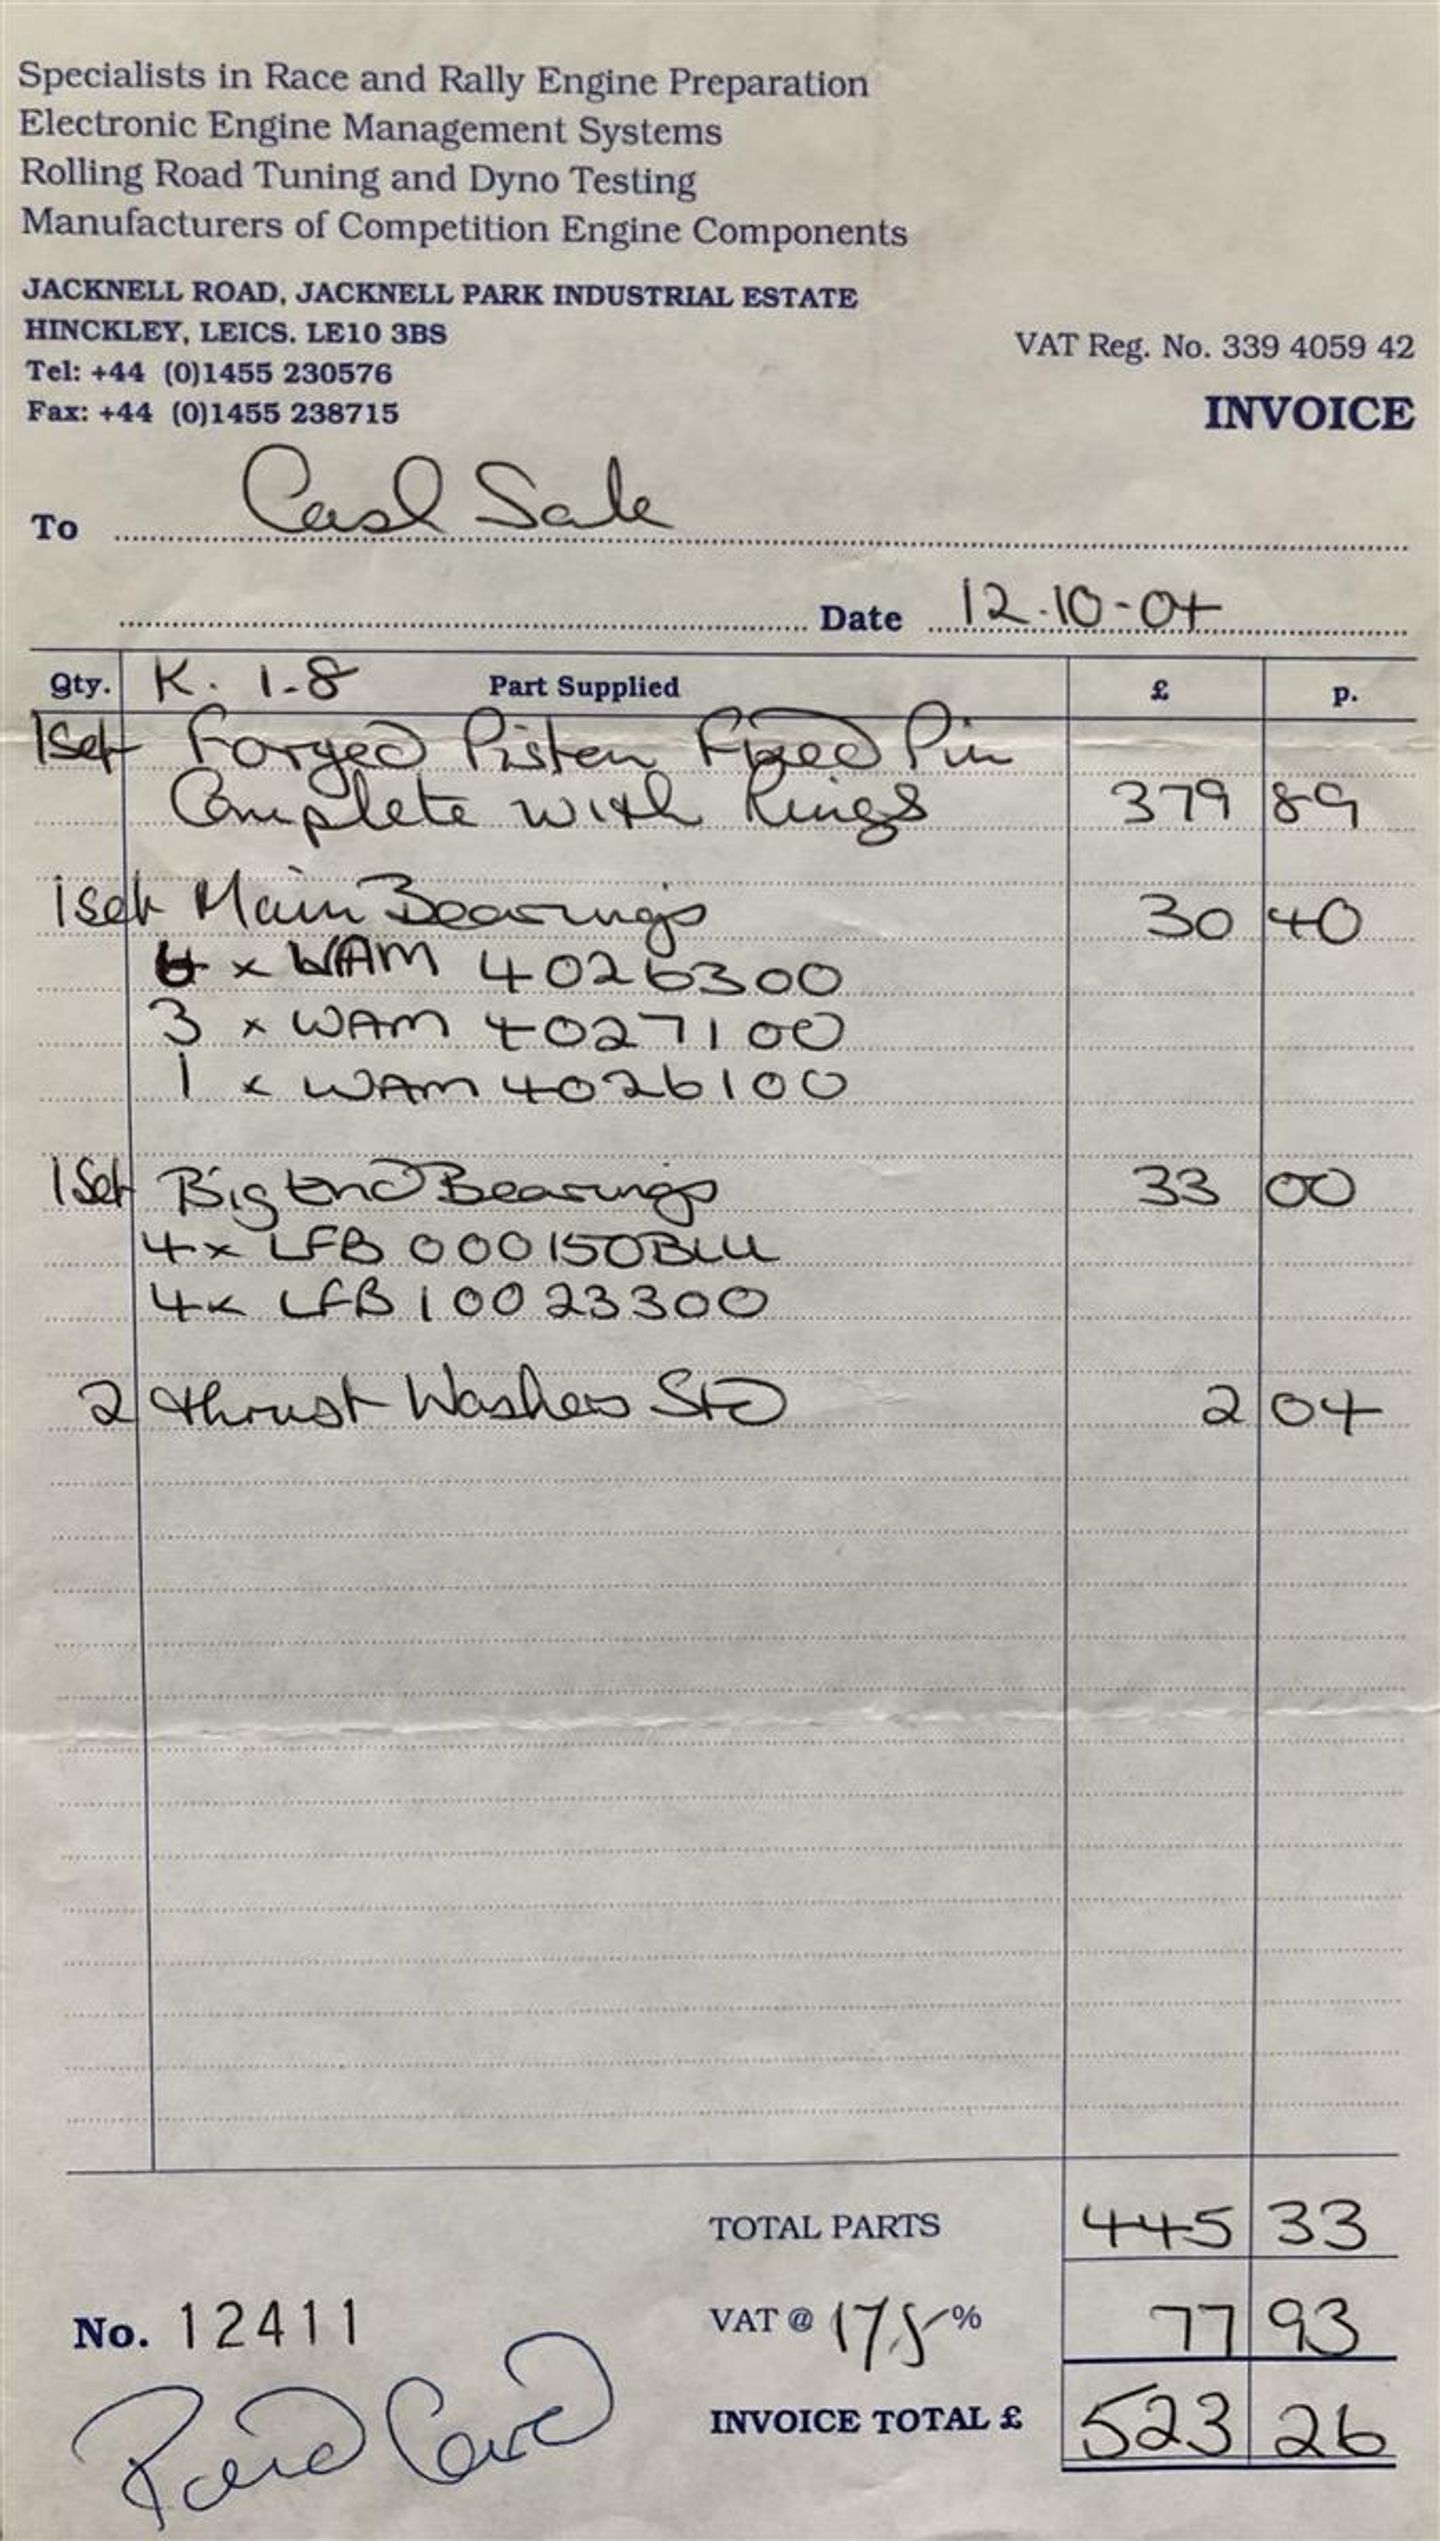 Specialists in Race and Rally Engine Preparation
Electronic Engine Management Systems
Rolling Road Tuning and Dyno Testing
Manufacturers of Competition Engine Components
JACKNELL ROAD, JACKNELL PARK INDUSTRIAL ESTATE
HINCKLEY, LEICS. LE10 3BS
Tel: +44 (0)1455 230576
Fax: +44 (0)1455 238715
VAT Reg. No. 339 4059 42
INVOICE
To Cash Sale
Date 12-10-04
Qty. K. 1-8 Part Supplied £ p.
1 Set Forged Piston Fixed Pin
Complete with Rings 379 89
1 Set Main Bearings 30 40
x WAM 4026300
3 x WAM 4027100
1 x WAM 4026100
1 Set Big End Bearings 33 00
4x LFB 000150BLU
4x LFB 10023300
2 thrust Washers STD 2 04
TOTAL PARTS 445 33
No. 12411
VAT @ 17.5 % 77 93
INVOICE TOTAL £ 523 26
Paid Card